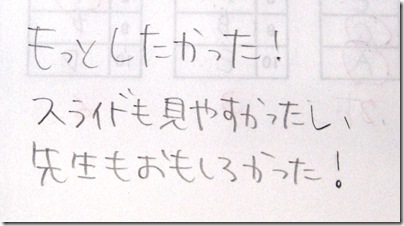 もっとしたかった!
スライドも見やすかったし、
先生もおもしろかった!